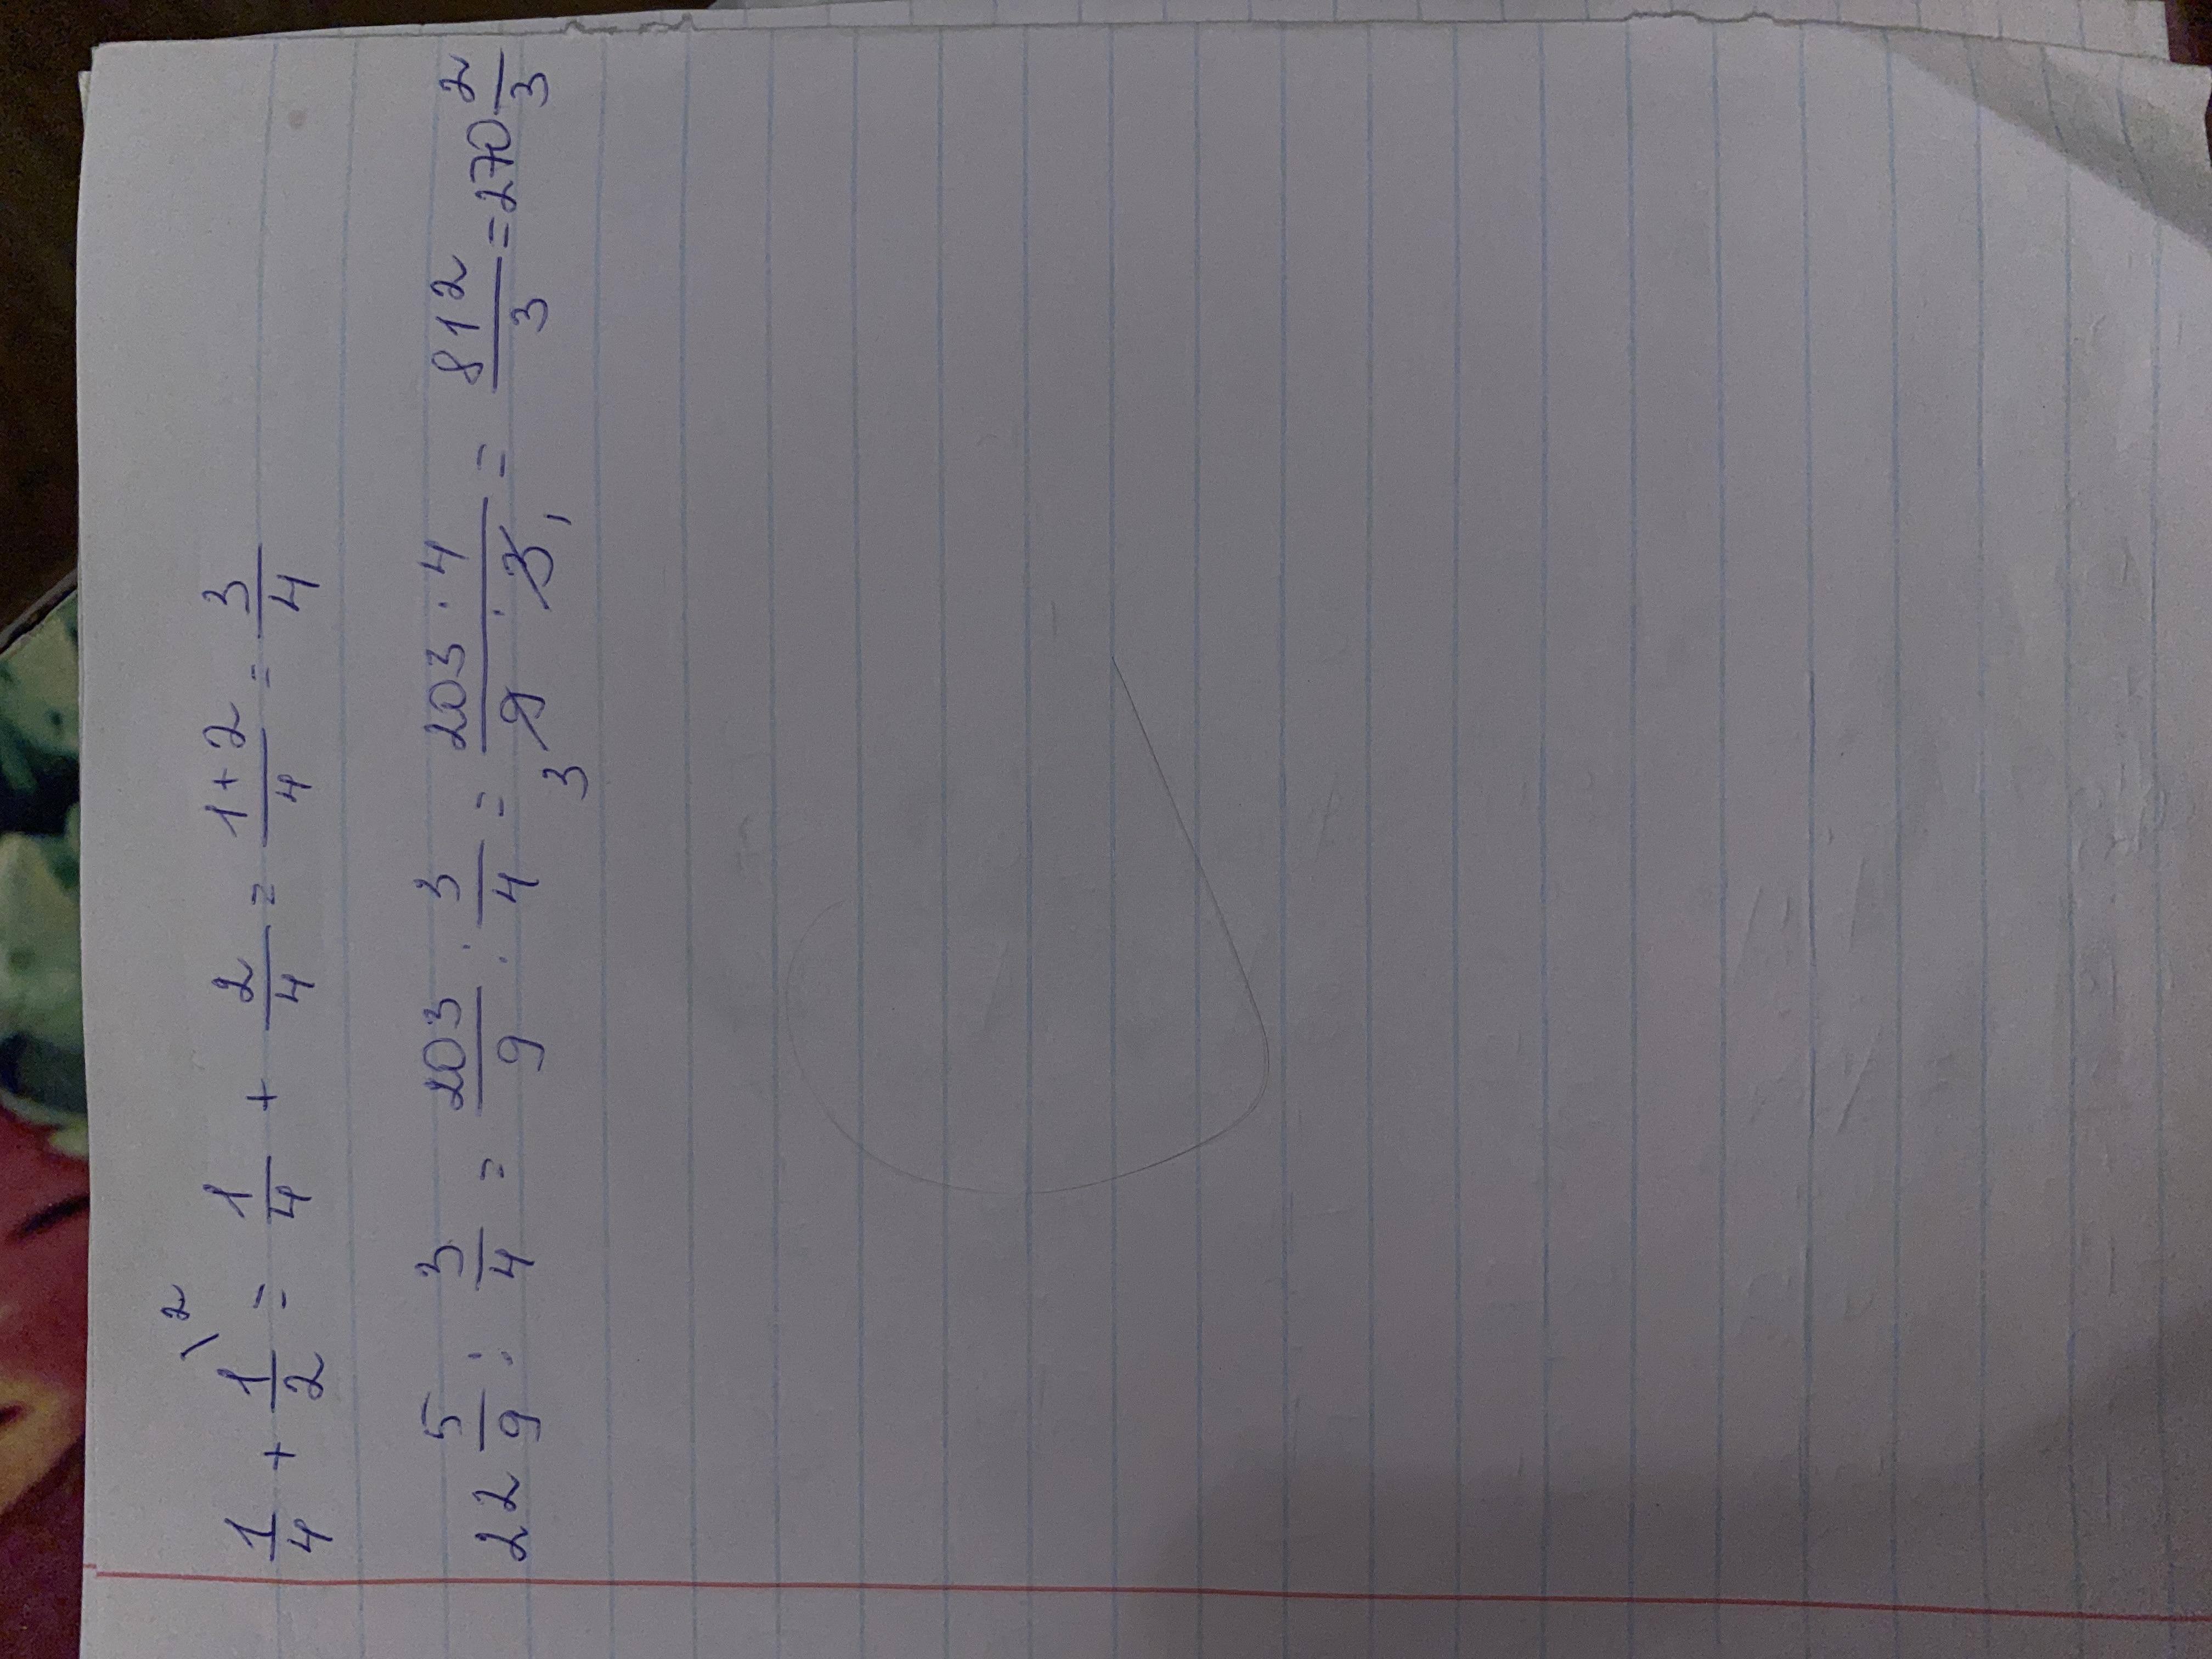 1/4 + 1/2 \2 = 1/4 + 2/4 = 1+2/4 = 3/4
22 5/9 : 3/4 = 203/9 : 3/4 = 203 · 4/9 · 3 = 812/3 = 270 2/3
3 1